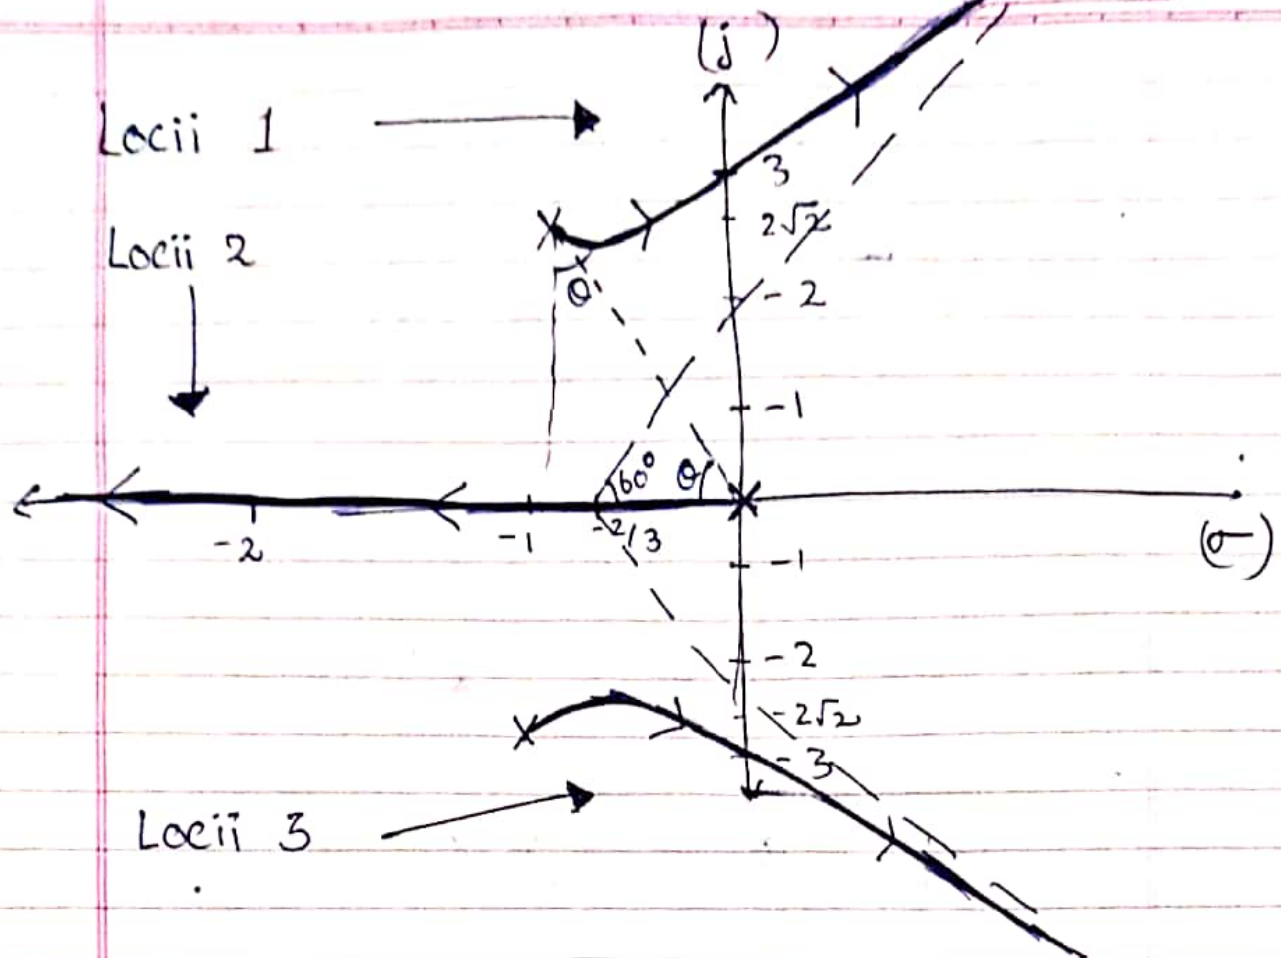 (j )
Locii 1
3
Locii 2
2√2
θ
-2
-1
60° θ
-2
-1
-2/3
(σ)
-1
-2
-2√2
-3
Locii 3